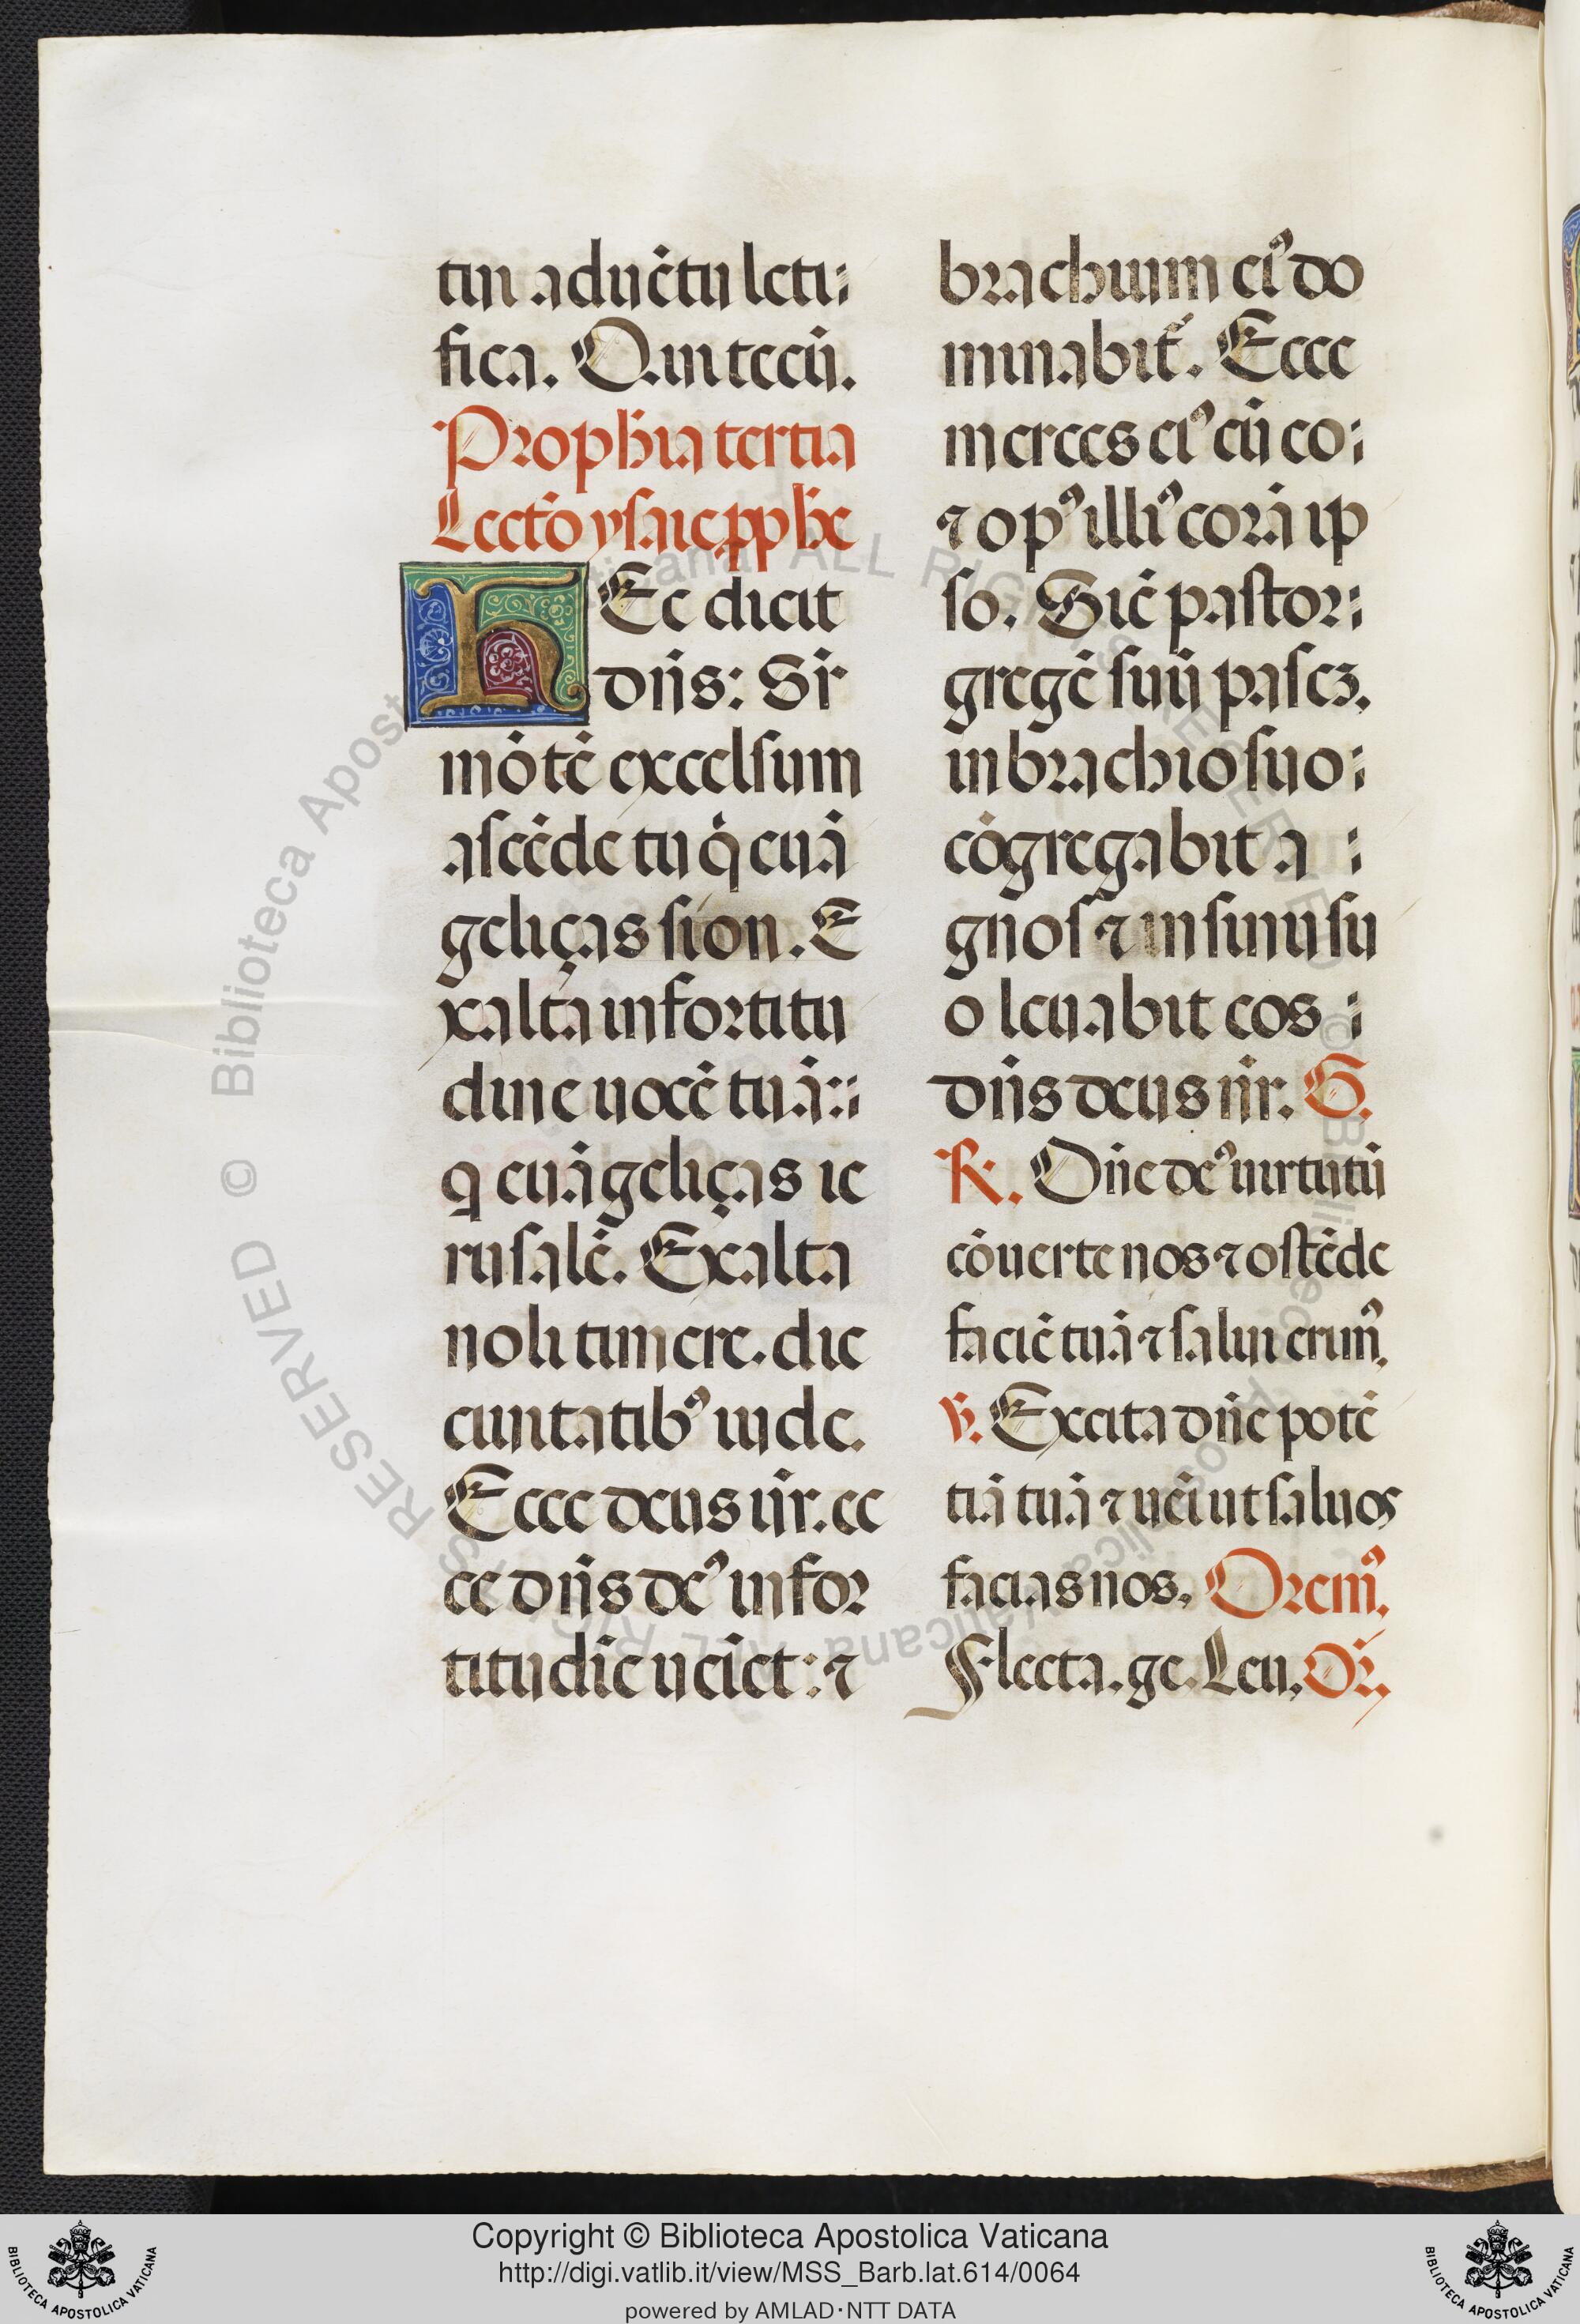 tui aduētu leti:
fica. Qui tecū.
Proph̄ia tertia
Lectō ysaie ꝓph̄e
HEc dicit
dn̄s: Sr̄
mōtē excelsum
ascēde tu q̄ euā
geliças sion. E
xalta in fortitu
dine uocē tuā::
q euāgeliças ie
rusalē. Exalta
noli timere. dic
ciuitatibꝰ iude.
Ecce deus nr̄. ec
ce dn̄s deꝰ in for
titudīe ueīet: ⁊
brachium eiꝰ do
minabit᷑. Ecce
merces eiꝰ cū eo:
⁊ opꝰ illiꝰ corā ip
so. Sic̄ pastor:
gregē suū pascꝫ.
in brachio suo:
cōgregabit a :
gnos ⁊ in sinu su
o leuabit eos :
dn̄s deus nr̄. G.
R. Dn̄e deꝰ uirtutū
cōuerte nos ⁊ ostēde
faciē tuā ⁊ salui erimꝰ.
V. Excita dn̄e potē
tiā tuā ⁊ uēi ut saluos
facias nos. Oremꝰ.
Flecta. ge. Leu. Or̄.
© Biblioteca Apostolica Vaticana ALL RIGHTS RESERVED
© Biblioteca Apostolica Vaticana ALL RIGHTS RESERVED
Copyright © Biblioteca Apostolica Vaticana
http://digi.vatlib.it/view/MSS_Barb.lat.614/0064
powered by AMLAD·NTT DATA
BIBLIOTECA APOSTOLICA VATICANA
BIBLIOTECA APOSTOLICA VATICANA